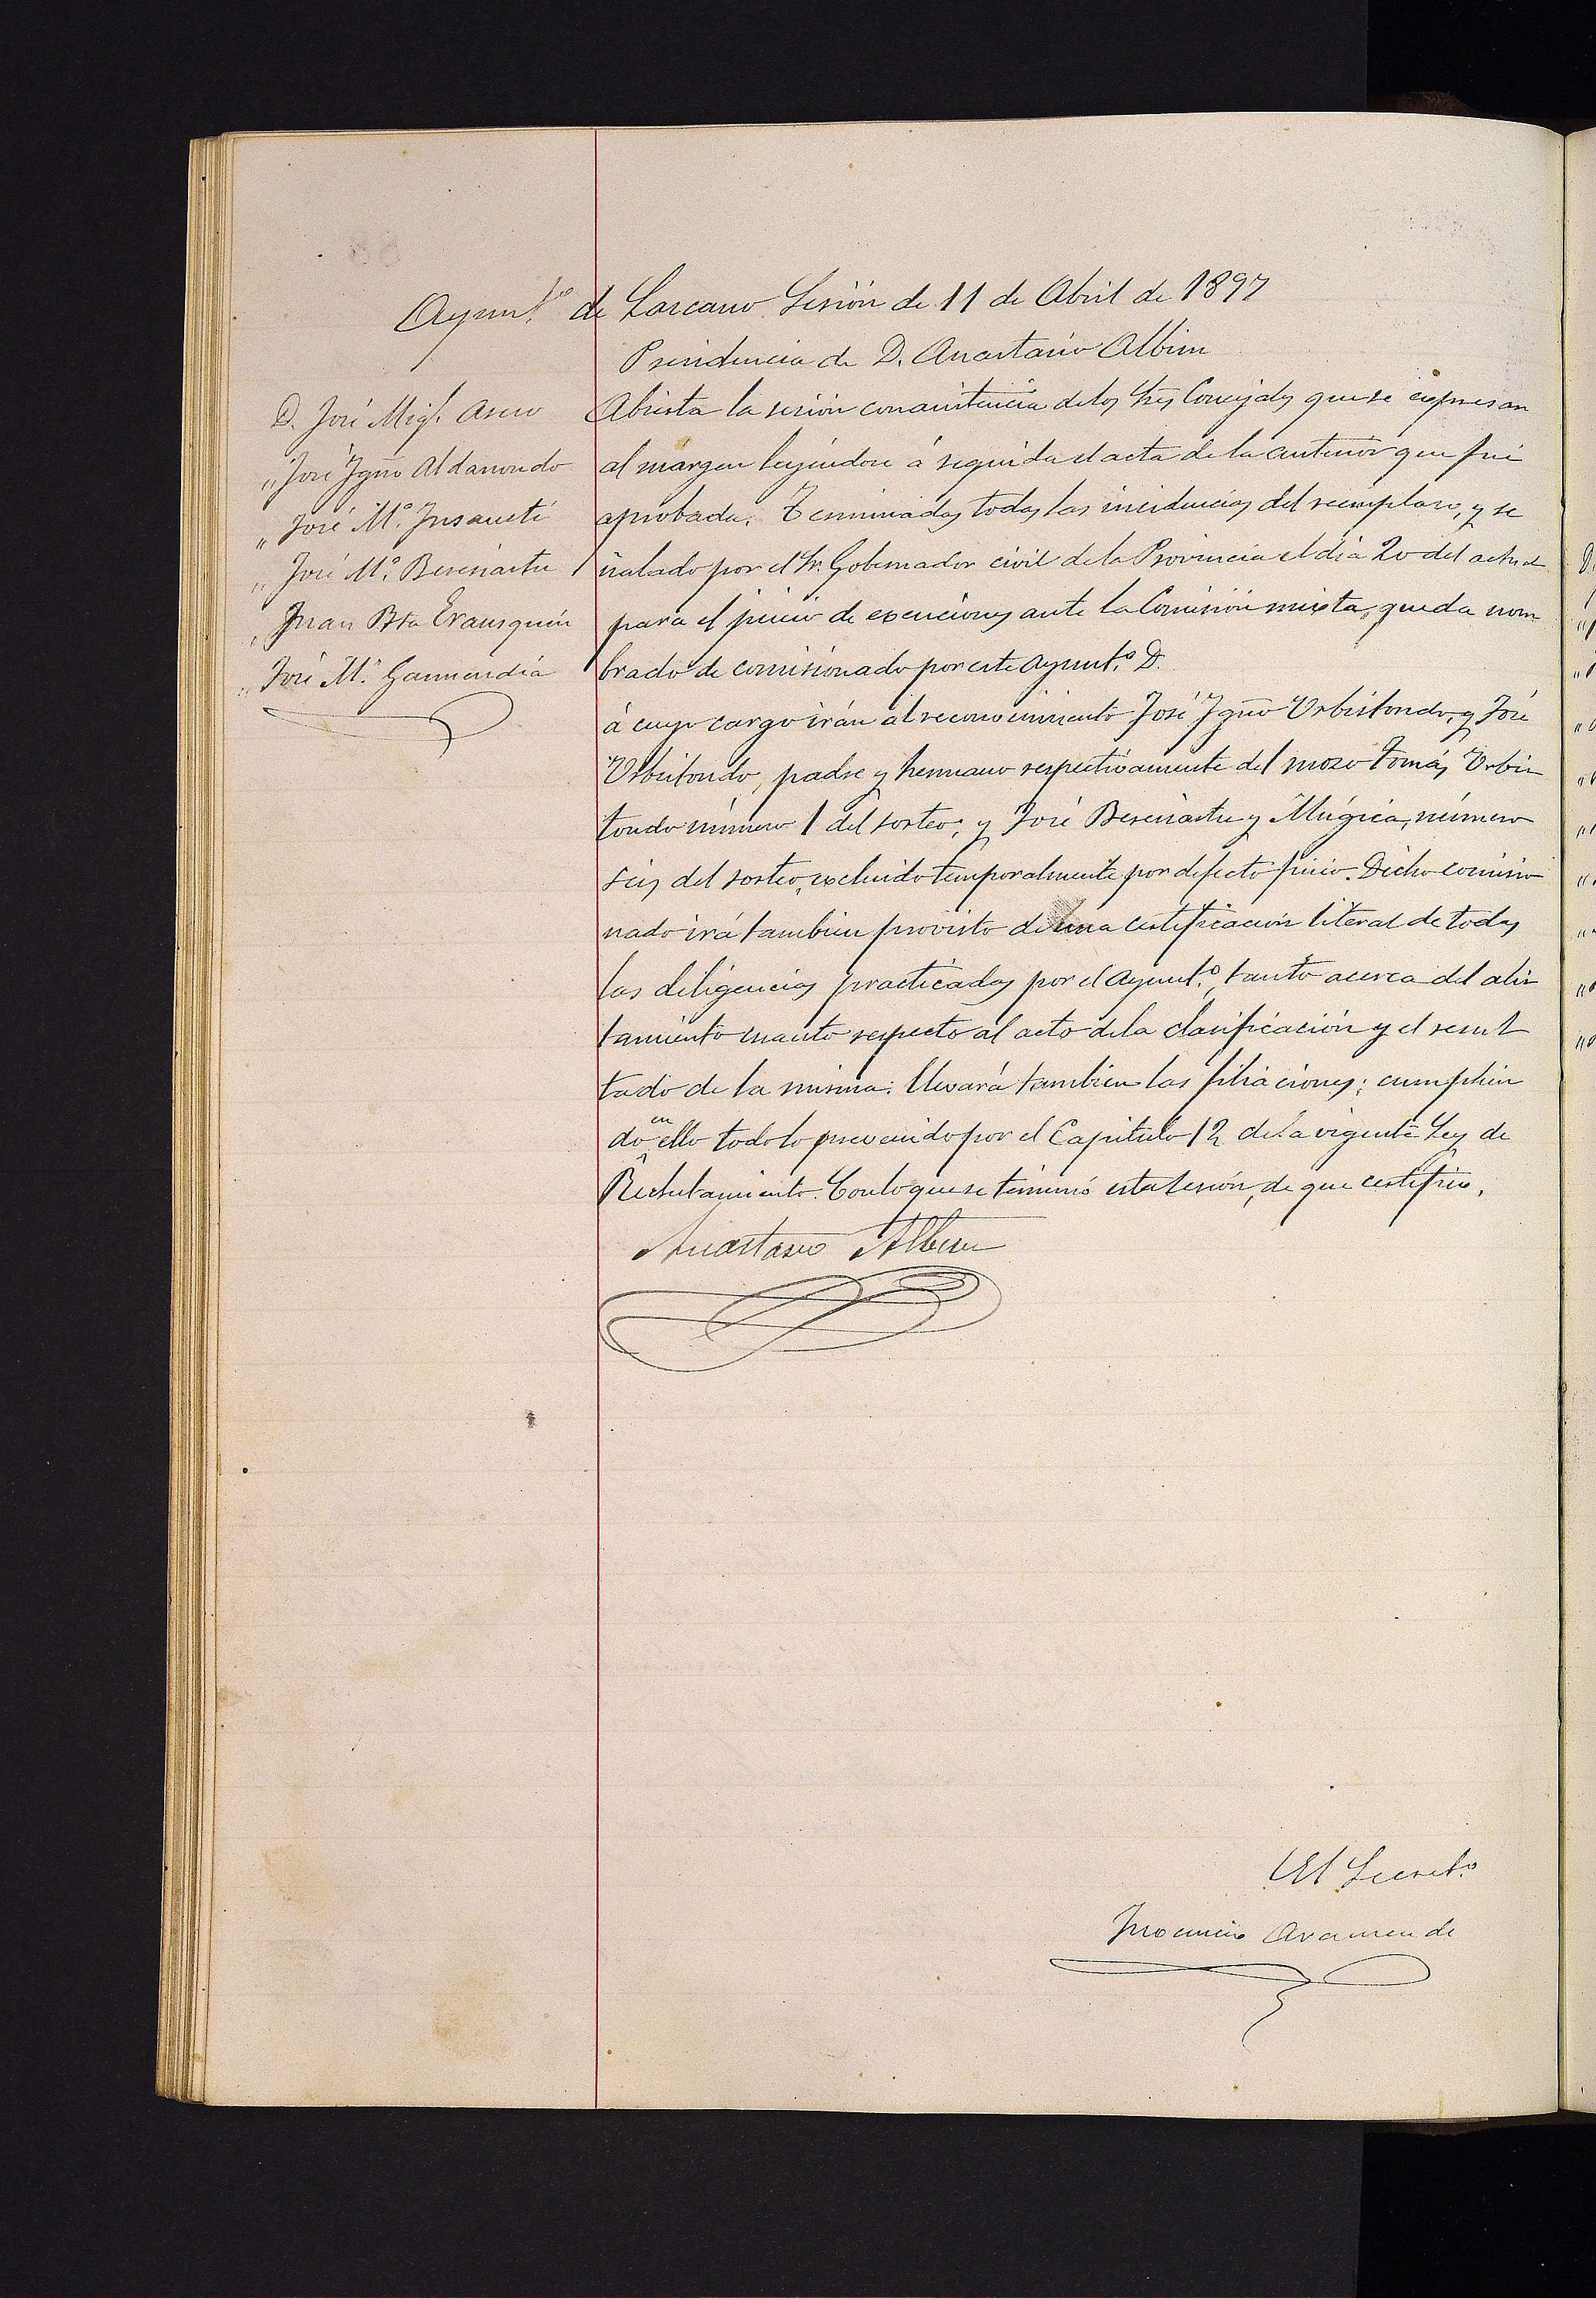 Ayunt.to de Lazcano Sesión de 11 de Abril de 1897
Presidencia de D. Anastasio Albisu
D. José Mig.l Asero
„ José Ygño Aldasoro
„ José M.ª Insausti
„ José M.ª Bereciartu
„ Juan Bta Erausquin
„ José M.ª Garmendia
Abierta la sesión con asistencia de los Sres Concejales que se expresan
al márgen leyéndose á seguida el acta de la anterior que fué
aprobada. Terminadas todas las incidencias del reemplazo, y se
ñalado por el Sr. Gobernador civil de la Provincia el día 20 del actual
para el juicio de exenciones ante la Comisión mixta, queda nom
brado de comisionado por este Ayunt.º D.
á cuyo cargo irán al reconocimiento José Ygño Urbistondo, y José
Urbistondo, padre y hermano respectivamente del mozo Tomás Urbis
tondo número 1 del sorteo; y José Bereciartu y Múgica, número
seis del sorteo, excluido temporalmente por defecto físico. Dicho comisio
nado irá tambien provisto de una certificación literal de todas
las diligencias practicadas por el Ayunt.º, tanto acerca del alis
tamiento cuanto respecto al acto de la clasificación y el resul
tado de la misma: llevará tambien las filiaciones: cumplien
do en ello todo lo prevenido por el Capitulo 12 de la vigente Ley de
Reclutamiento. Con lo que se terminó esta sesión, de que certifico.
Anastasio Albisu
El Secret.º
Inocencio Aramendi